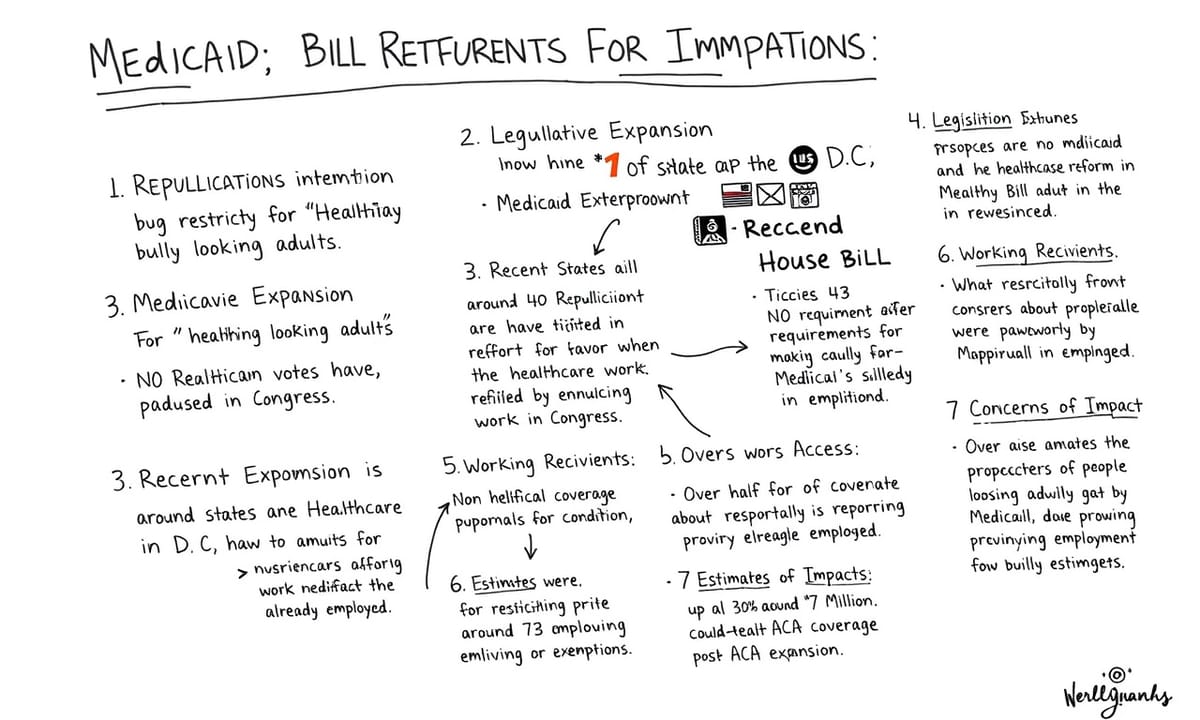 MEDICAID; BILL RETFURENTS FOR IMMPATIONS:
1. REPULLICATIONS intemtion
bug restricty for "Healthiay
bully looking adults.
3. Mediicavie Expansion
For "healthing looking adults"
· NO Realtticam votes have,
padused in Congress.
3. Recernt Expomsion is
around states ane Healthcare
in D.C, haw to amuits for
> nusriencars afforig
work nediffact the
already employed.
2. Legullative Expansion
Inow hine *1 of sitate ap the IUS D.C,
· Medicaid Exterproownt
· Reccend
House BiLL
3. Recent States aill
around 40 Repulliciiont
are have tiiited in
reffort for favor when
the healthcare work.
refiled by ennulcing
work in Congress.
· Ticcies 43
NO requiment aifer
requirements for
makiy caully for-
Mediical's sillledy
in emplitiond.
5. Working Recivients:
Non helifical coverage
pupomals for condition,
6. Estimites were.
for resticihing prite
around 73 omplouing
emliving or exenptions.
b. Overs wors Access:
· Over half for of covenate
about resportally is reporring
proviry elreagle employed.
· 7 Estimates of Impacts:
up al 30% aound "7 Million.
could-tealt ACA coverage
post ACA expansion.
4. Legislition Exhunes
Prsopces are no mdiicaid
and he healthcase reform in
Mealthy Bill adut in the
in rewesinced.
6. Working Recivients.
· What resrcitolly front
consrers about propleialle
were pawcworly by
Mappiruall in empinged.
7 Concerns of Impact
· Over aise amates the
propeccters of people
loosing adwilly gat by
Medicaill, daue prowing
prcvinying employment
fow builly estimgets.
Werllgnanks